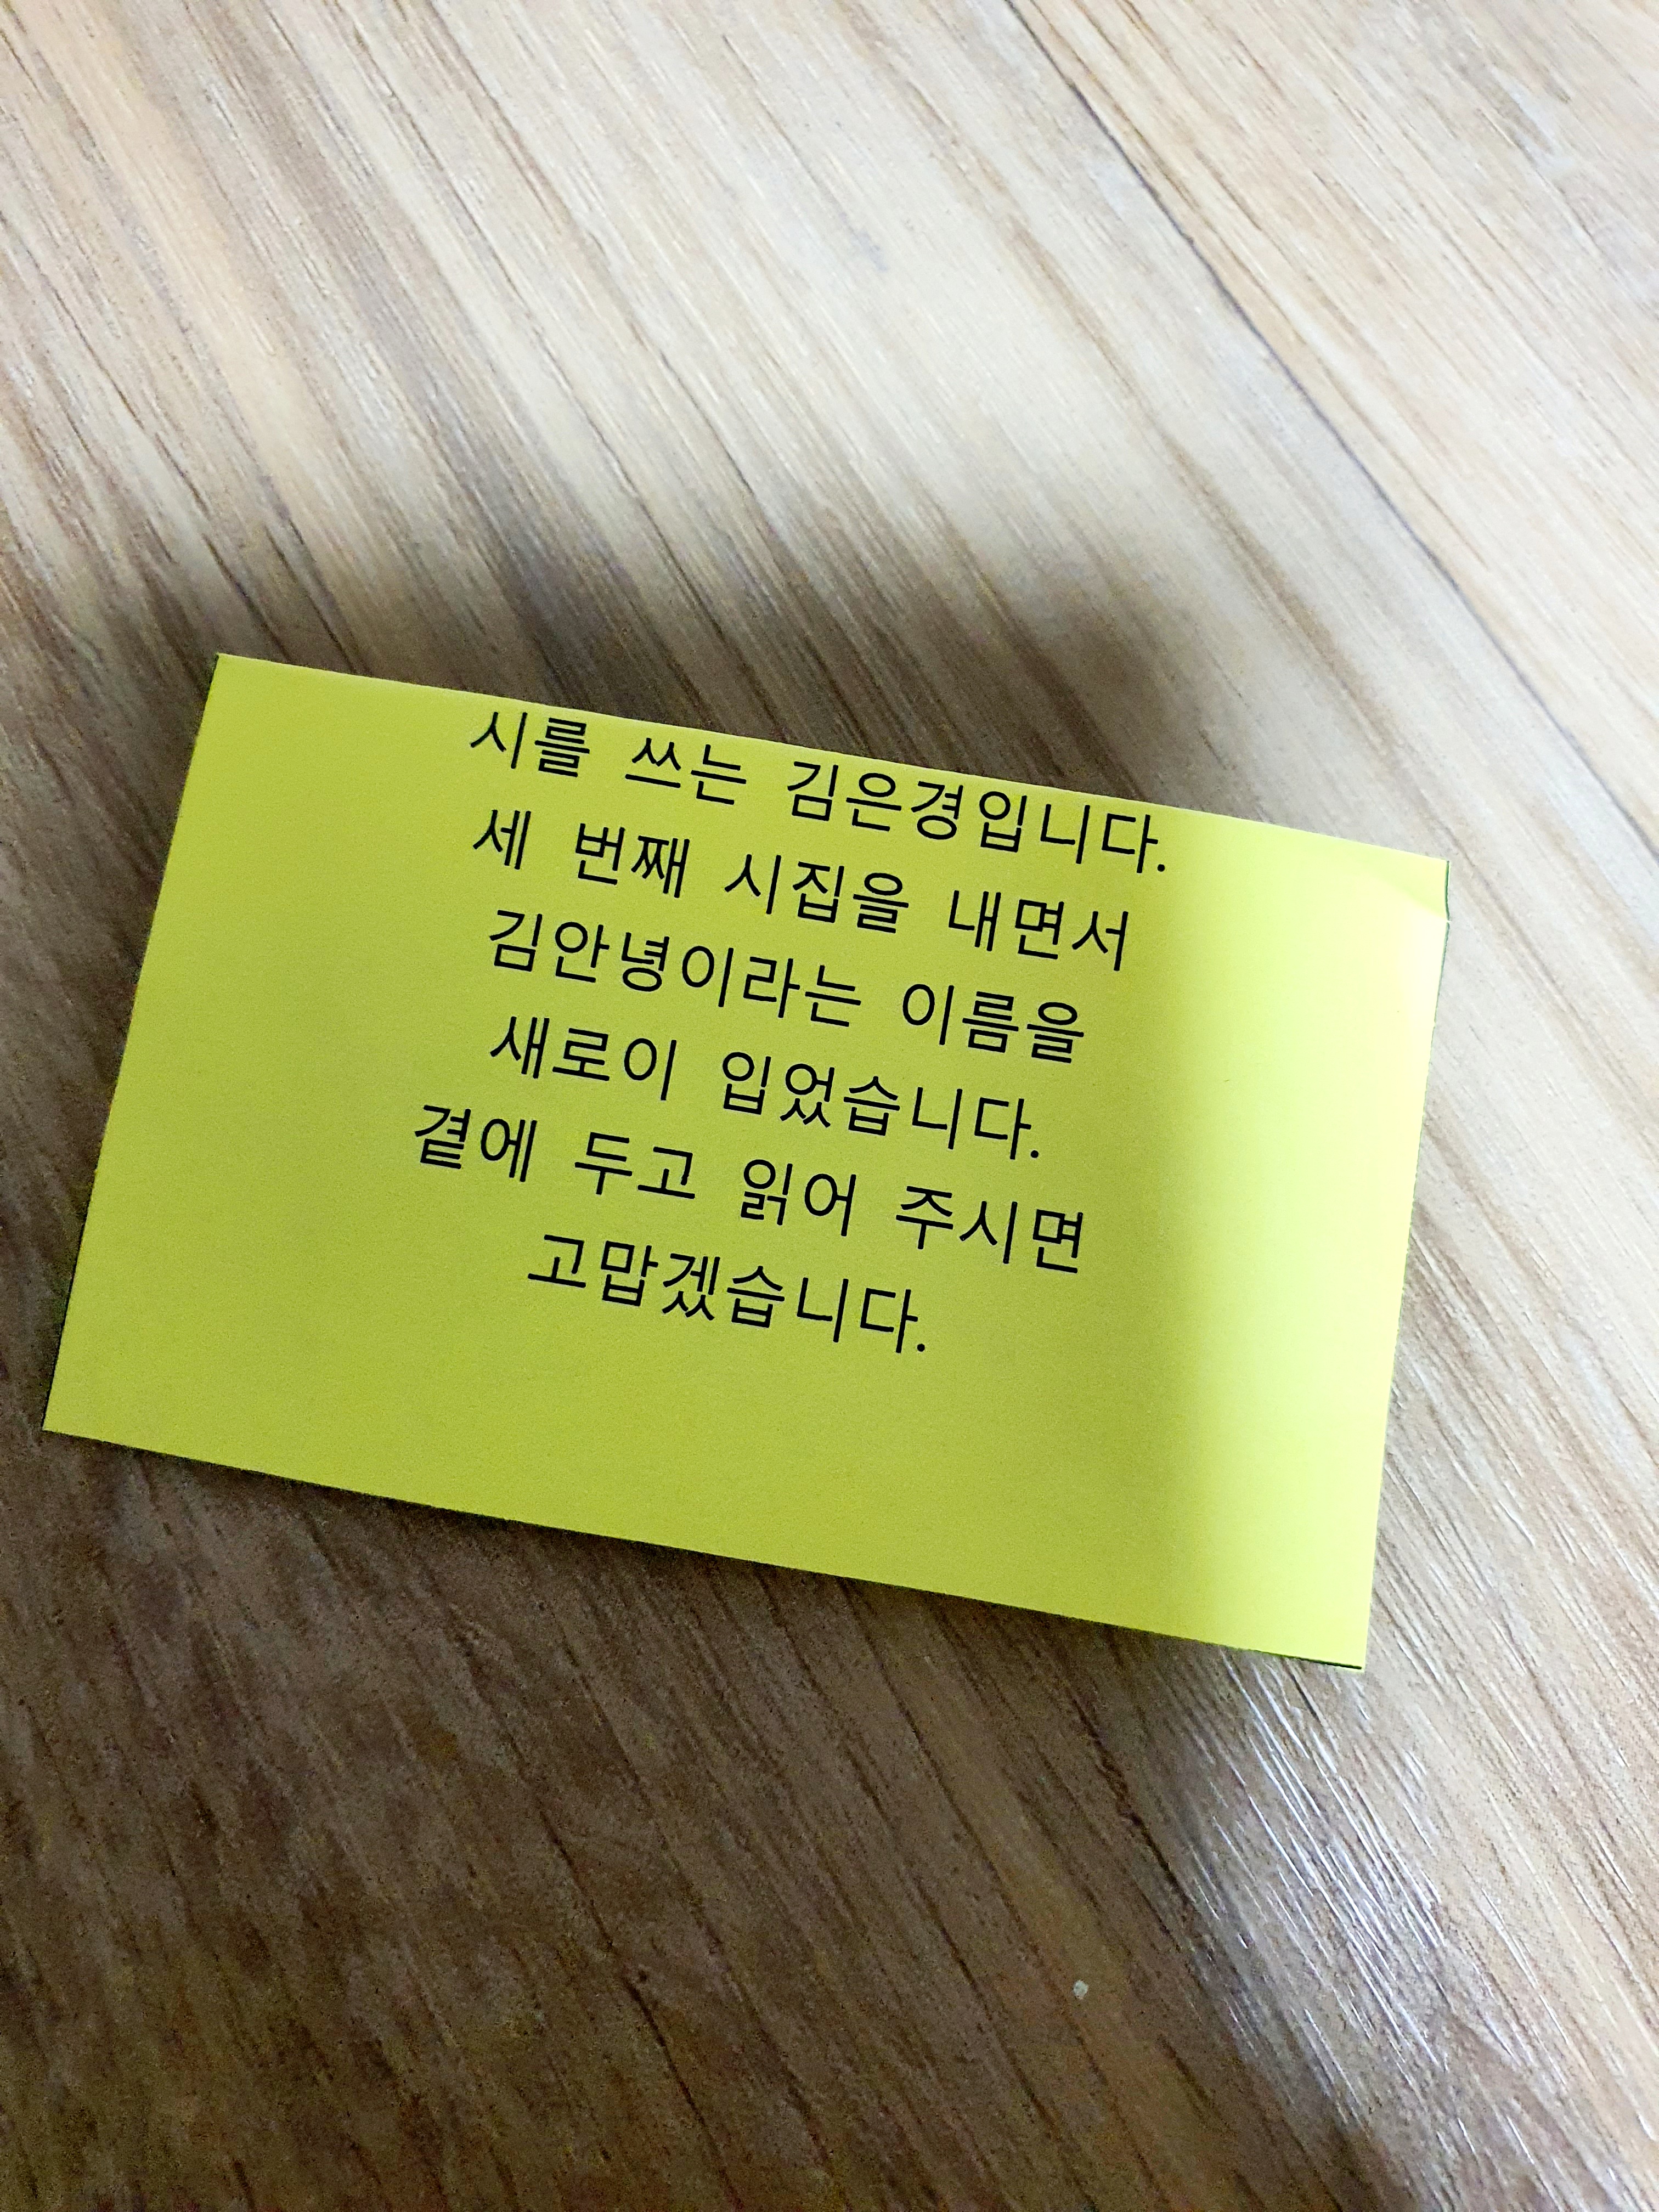 시를 쓰는 김은경입니다.
세 번째 시집을 내면서
김안녕이라는 이름을
새로이 입었습니다.
곁에 두고 읽어 주시면
고맙겠습니다.